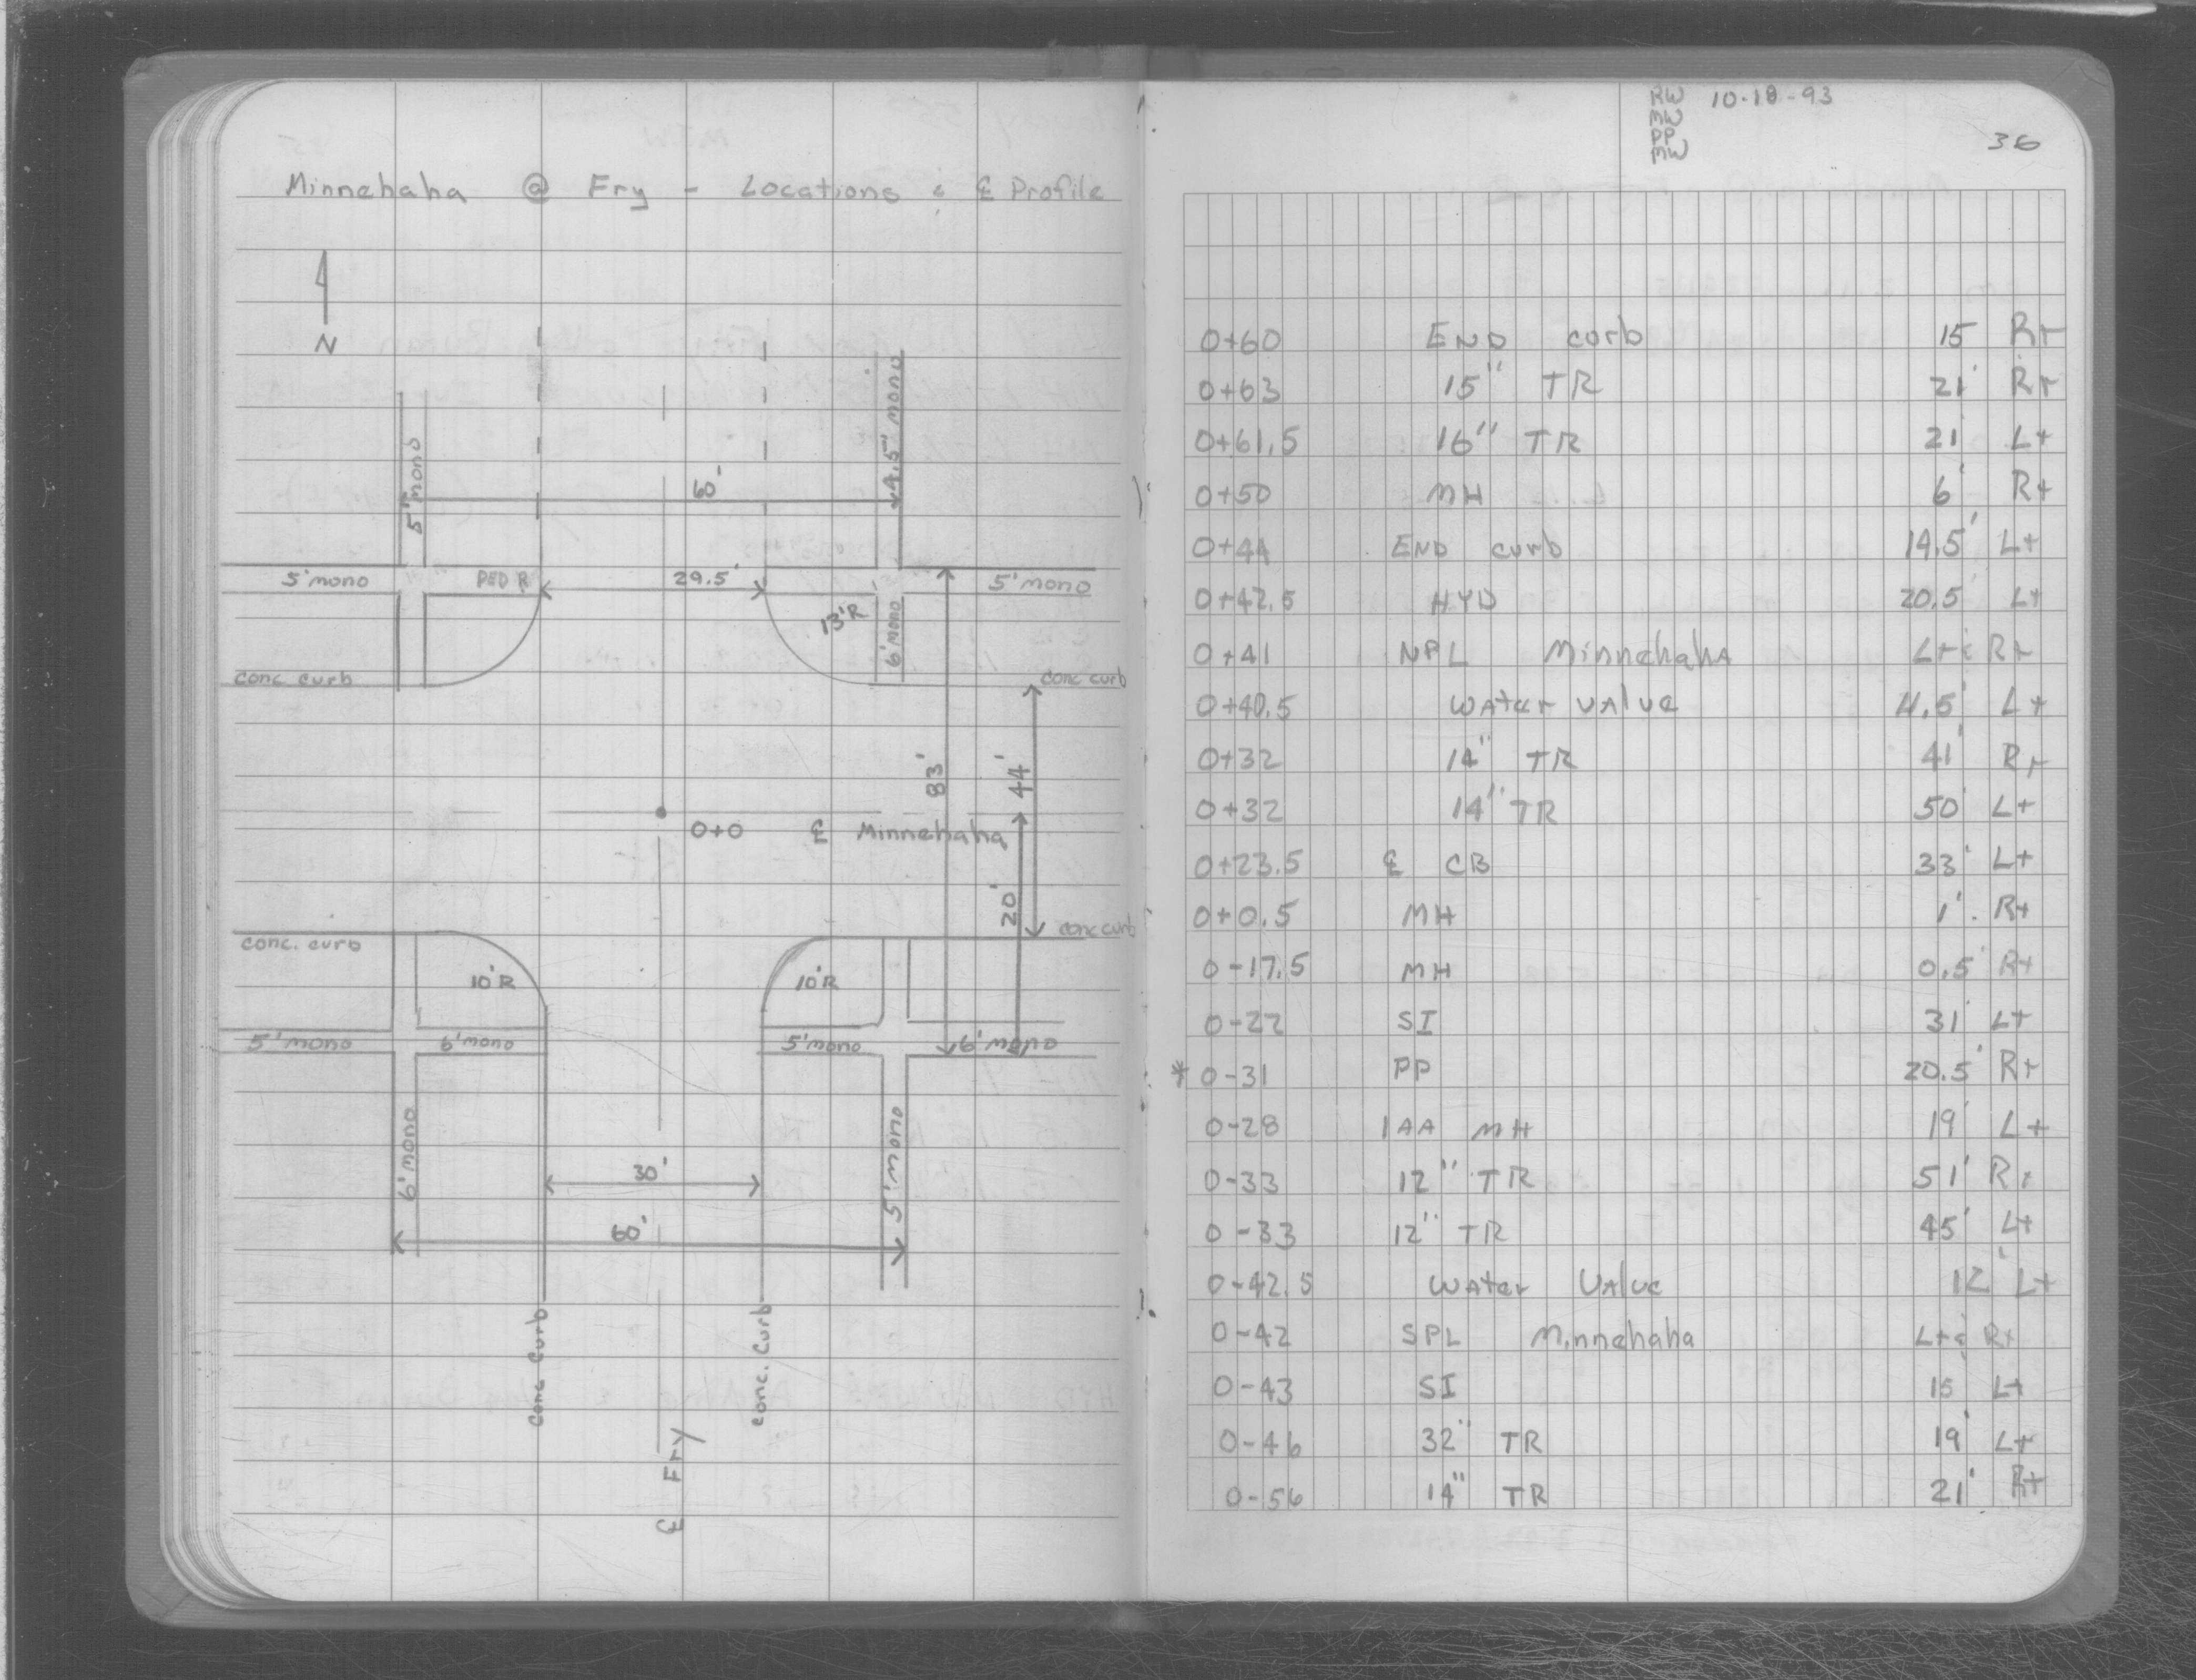 Minnehaha @ Fry - Locations & ℄ Profile
N
5' mono
4.5' mono
60'
5' mono
PED R
29.5'
5' mono
13'R
6' mono
conc curb
conc curb
83'
44'
0+0 ℄ Minnehaha
20'
conc. curb
conc curb
10'R
10'R
5' mono
6' mono
5' mono
6' mono
6' mono
5' mono
30'
60'
conc curb
conc. curb
℄ Fry
RW 10-18-93
MW
PP
MW
36
0+60 END curb 15 Rt
0+63 15" TR 21' Rt
0+61.5 16" TR 21 Lt
0+50 MH 6' Rt
0+44 END curb 14.5' Lt
0+42.5 HYD 20.5 Lt
0+41 NPL Minnehaha Lt & Rt
0+40.5 Water Valve 11.5' Lt
0+32 14" TR 41' Rt
0+32 14" TR 50' Lt
0+23.5 ℄ CB 33' Lt
0+0.5 MH 1' Rt
0-17.5 MH 0.5' Rt
0-22 SI 31' Lt
* 0-31 PP 20.5' Rt
0-28 1AA MH 19' Lt
0-33 12" TR 51' Rt
0-33 12" TR 45' Lt
0-42.5 Water Valve 12' Lt
0-42 SPL Minnehaha Lt & Rt
0-43 SI 15 Lt
0-46 32" TR 19' Lt
0-56 14" TR 21' Rt